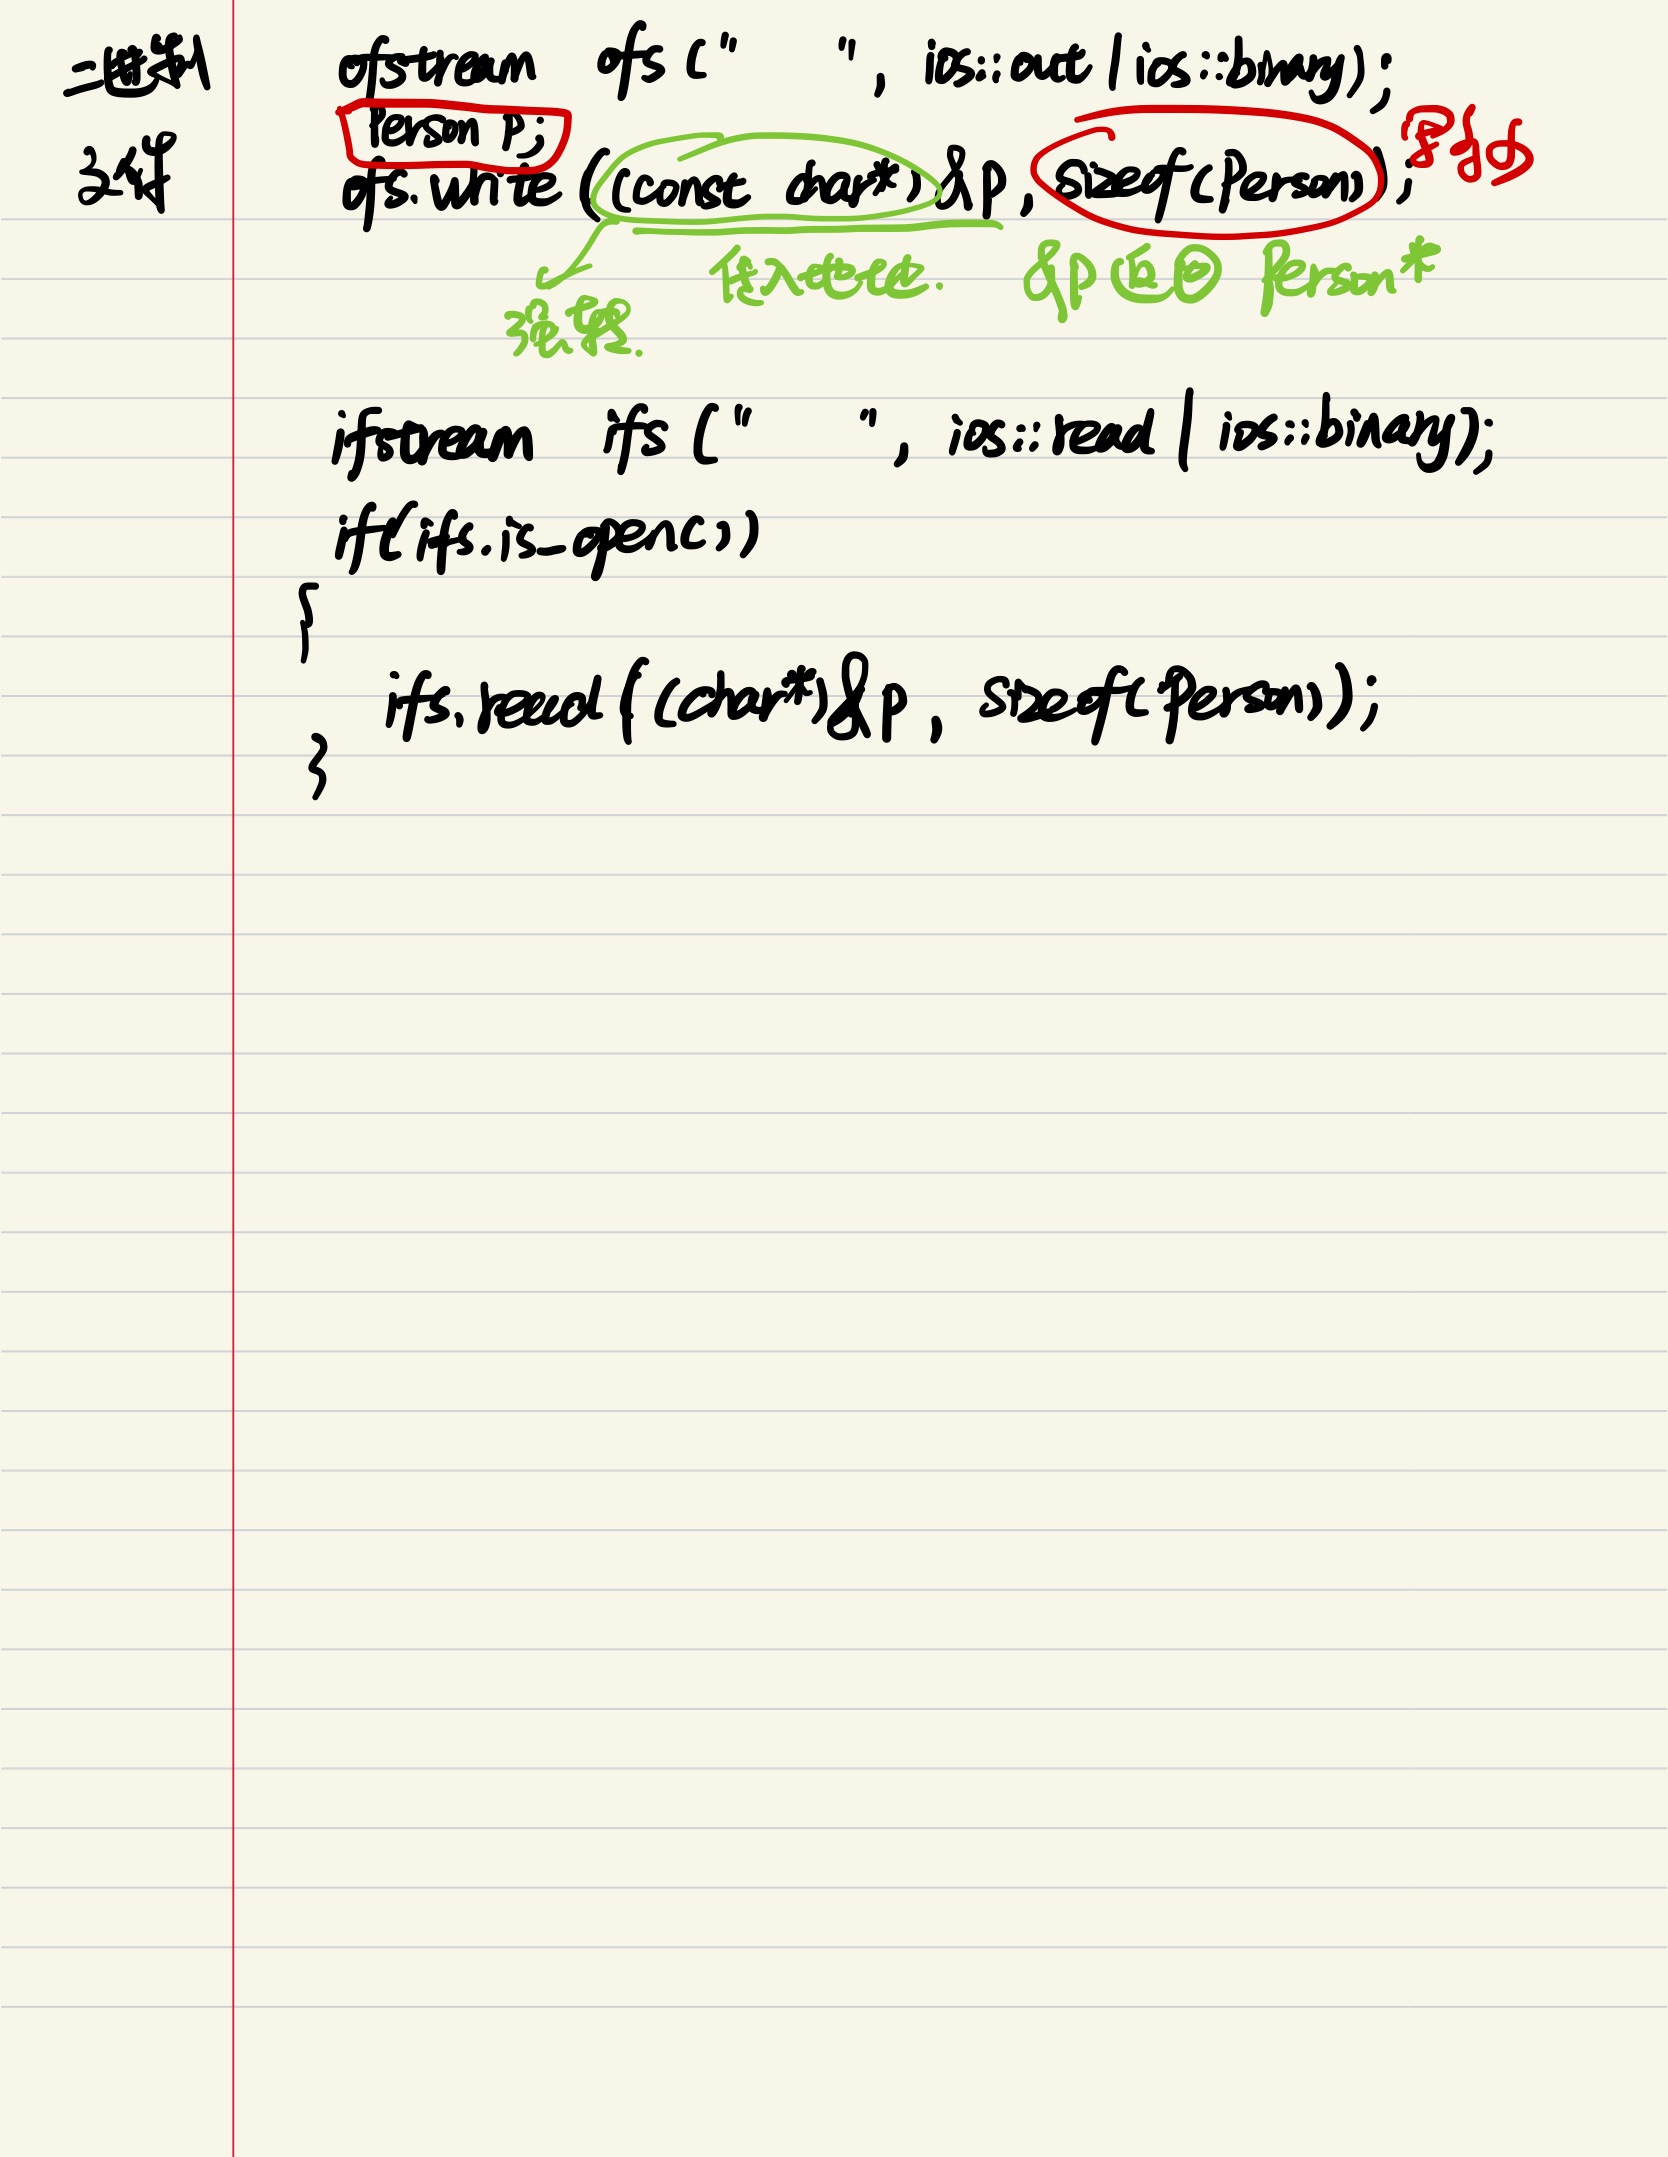 二进制 ofstream ofs (" ", ios::out | ios::binary);
Person p;
文件 ofs.write ((const char*)&p, sizeof(Person));
传入地址. &p 返回 Person*
强转.
ifstream ifs (" ", ios::read | ios::binary);
if(ifs.is_open())
{
ifs.read ((char*)&p, sizeof(Person));
}